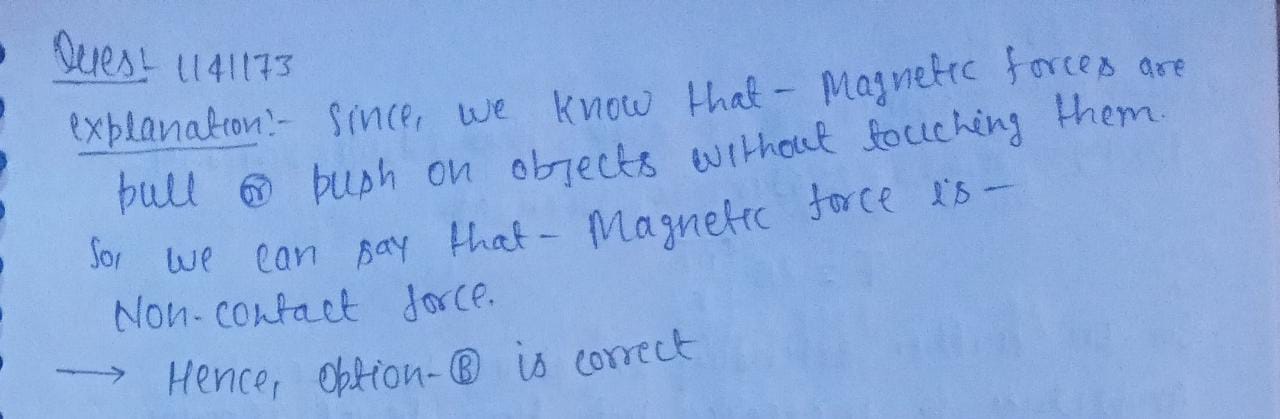 Quest 1141173
explanation:- Since, we know that - Magnetic forces are
pull or push on objects without touching them.
So, we can say that - Magnetic force is -
Non-contact force.
→ Hence, option-Ⓑ is correct